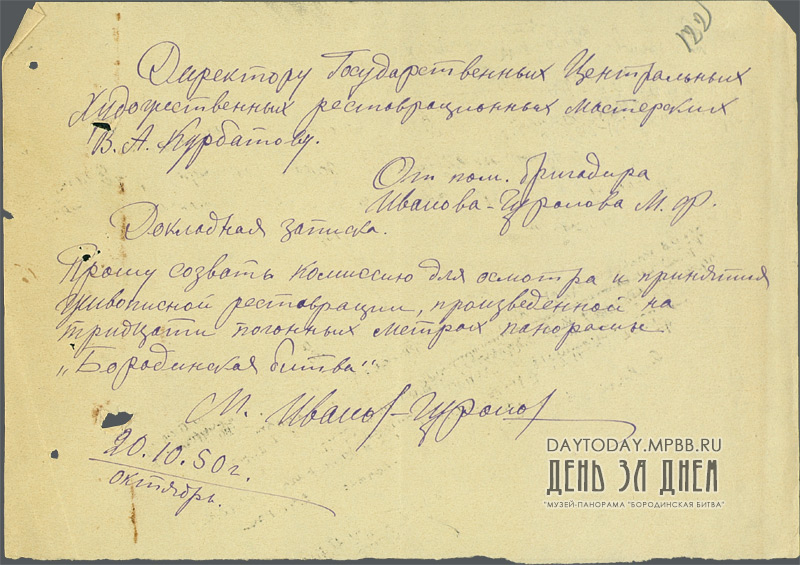 122
Директору Государственных Центральных
Художественных реставрационных мастерских
В. А. Курбатову.
От пом. бригадира
Иванова-Чуронова М. Ф.
Докладная записка.
Прошу созвать комиссию для осмотра и принятия
живописной реставрации, произведенной на
тридцати погонных метрах панорамы
„Бородинская битва"
М. Иванов-Чуронов
20.10.50 г.
октябрь.
DAYTODAY.MPBB.RU
ДЕНЬ ЗА ДНЕМ
"МУЗЕЙ-ПАНОРАМА "БОРОДИНСКАЯ БИТВА"